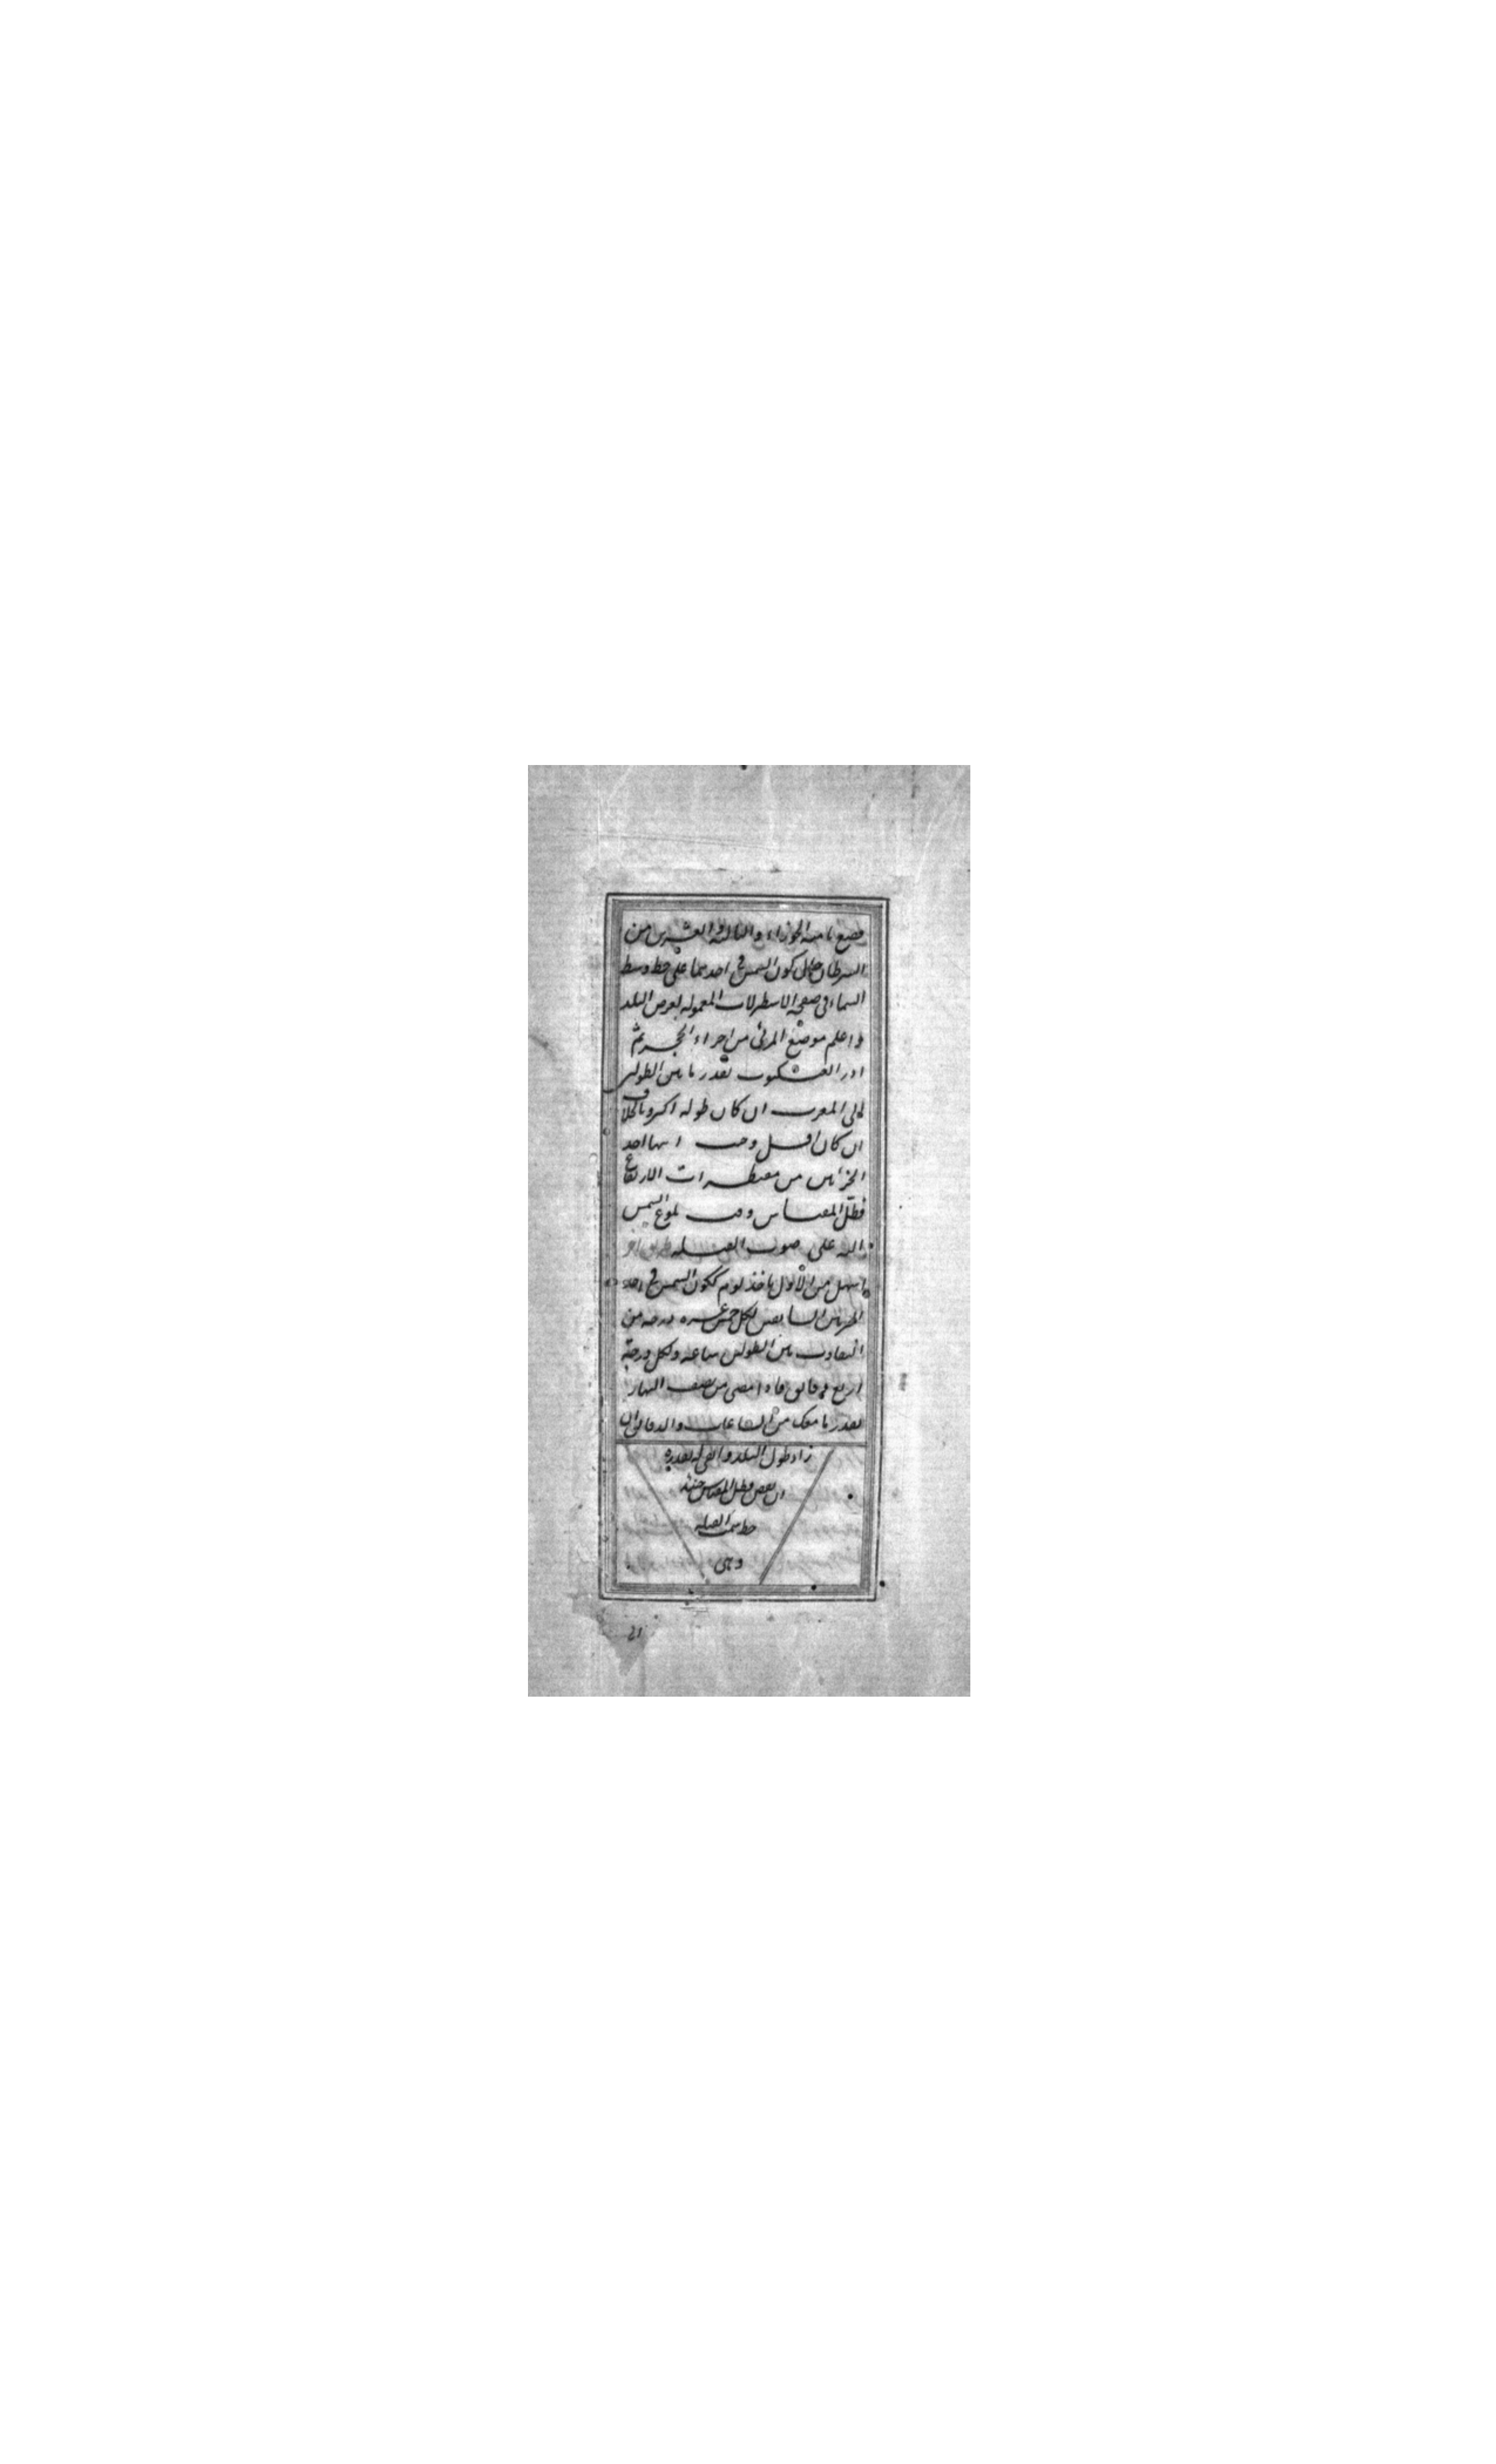 فضع ثامنة الجوزاء والثالثة والعشرين من
السرطان حال كون الشمس في احدهما على خط وسط
السماء في صفحة الاسطرلاب المعمولة لعرض البلد
واعلم موضع المرئي من اجزاء الحجرة ثم
ادر العنكبوت بقدر ما بين الطولين
الى المغرب ان كان طوله اكثر وبالخلاف
ان كان اقل وحيث انتها احد
الجزئين من مقنطرات الارتفاع
فظل المقياس وقت بلوغ الشمس
اليه على صوب القبلة طريق اخر
اسهل من الأول تأخذ ليوم تكون الشمس في احد
الجزئين السابقين لكل خمس عشرة درجة من
التفاوت بين الطولين ساعة ولكل درجة
اربع دقائق فاذا مضى من نصف النهار
بقدر ما معك من الساعات والدقائق ان
زاد طول البلد وبقي له بقدره
ان نقص فظل المقياس حينئذ
خط سمت القبلة
وهي